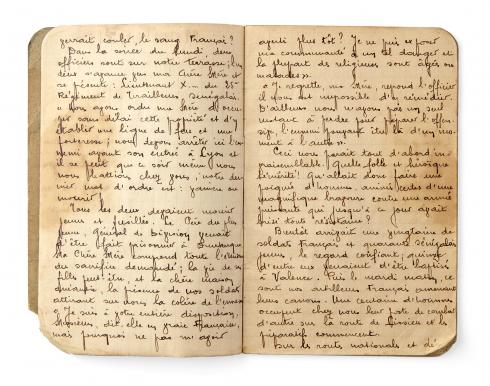 verrait couler, le sang Français ?
Dans la soirée du lundi, deux
officiers sont sur notre terrasse; l'un
deux s'avance vers ma Chère Mère et
se présente : Lieutenant X... du 25e
Régiment de Tirailleurs, Sénégalais
nous avons ordre ma Mère d'occu-
per sans délai cette propriété et d'y
établir une ligne de feu et une
forteresse; nous devons arrêter ici l'en-
nemi ayant son entrée à Lyon et
il se peut que ce soir même nous
nous battions chez vous; notre der-
nier mot d'ordre est : vaincre ou
mourir !
Tous les deux devaient mourir
jeunes et fusillés. Le Père du plus
jeune, Général de venait
d'être fait prisonnier à Dunkerque
Ma Chère Mère comprend toute l'étendue
du sacrifice demandé; la vie de ses
filles peut être et la chère maison
anéantie, la présence de nos soldats
attirant sur nous la colère de l'ennemi
« Je suis à votre entière disposition,
Messieurs, dit-elle en vraie Romaine,
mais pourquoi ne pas m'avoir
averti plus tôt ? Je ne puis exposer
ma communauté à un tel danger et
la plupart des religieuses sont âgées ou
malades ».
« Je regrette, ma Mère, répond l'officier
il nous est impossible d'y remédier.
D'ailleurs nous n'avons pas un seul
instant à perdre pour préparer l'offen-
sive, l'ennemi pouvant être là d'un mo-
ment à l'autre ».
Ceci nous parait tout d'abord in-
vraisemblable ! Quelle folle et héroïque
témérité ! Qu'allait donc faire une
poignée d'hommes, animés certes d'une
magnifique bravoure contre une armée
puissante qui jusqu'à ce jour avait
brisé toute résistance ?
Bientôt arrivait une vingtaine de
soldats Français et quarante Sénégalais
jeunes, le regard confiant; quinze
d'entre eux venaient d'être baptisés
à Valence. Puis le mardi matin, ce
sont nos artilleurs Français amenant
leurs canons. Une centaine d'hommes
occupent chez nous leur poste de combat
d'autre sur la route de et les
préparatifs commencent.
Sur les routes nationales et dé